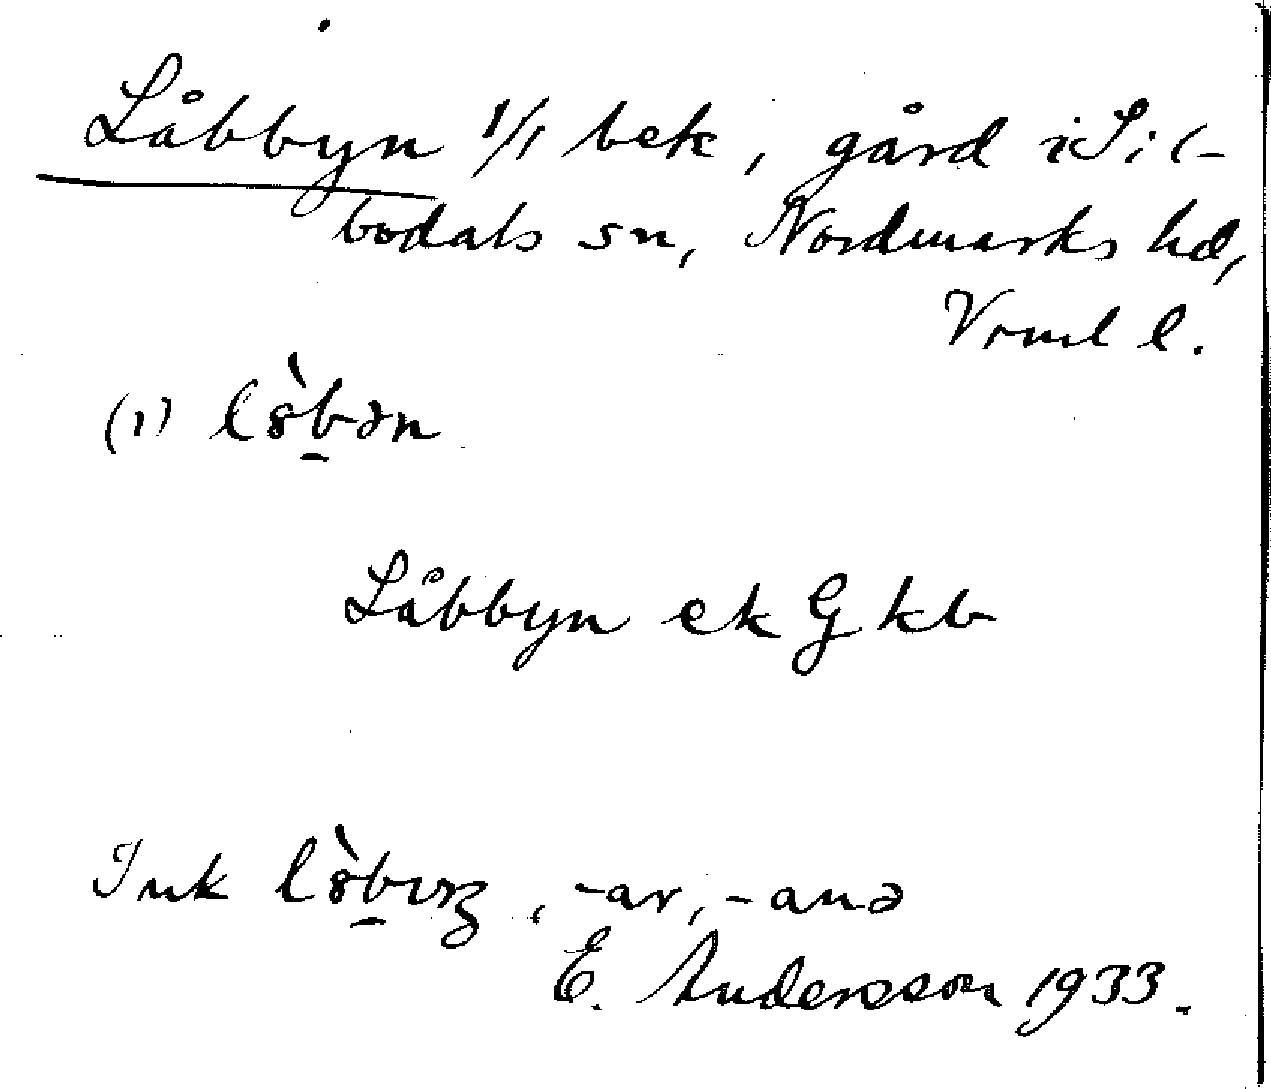 Låbbyn 1/1 bek, gård i Sil-
bodals sn, Nordmarks hd,
Vrml l.
(1) lȣ̀b̠ən
Låbbyn ek G kb
Ink , -ar, -anə
E. Andersson 1933.